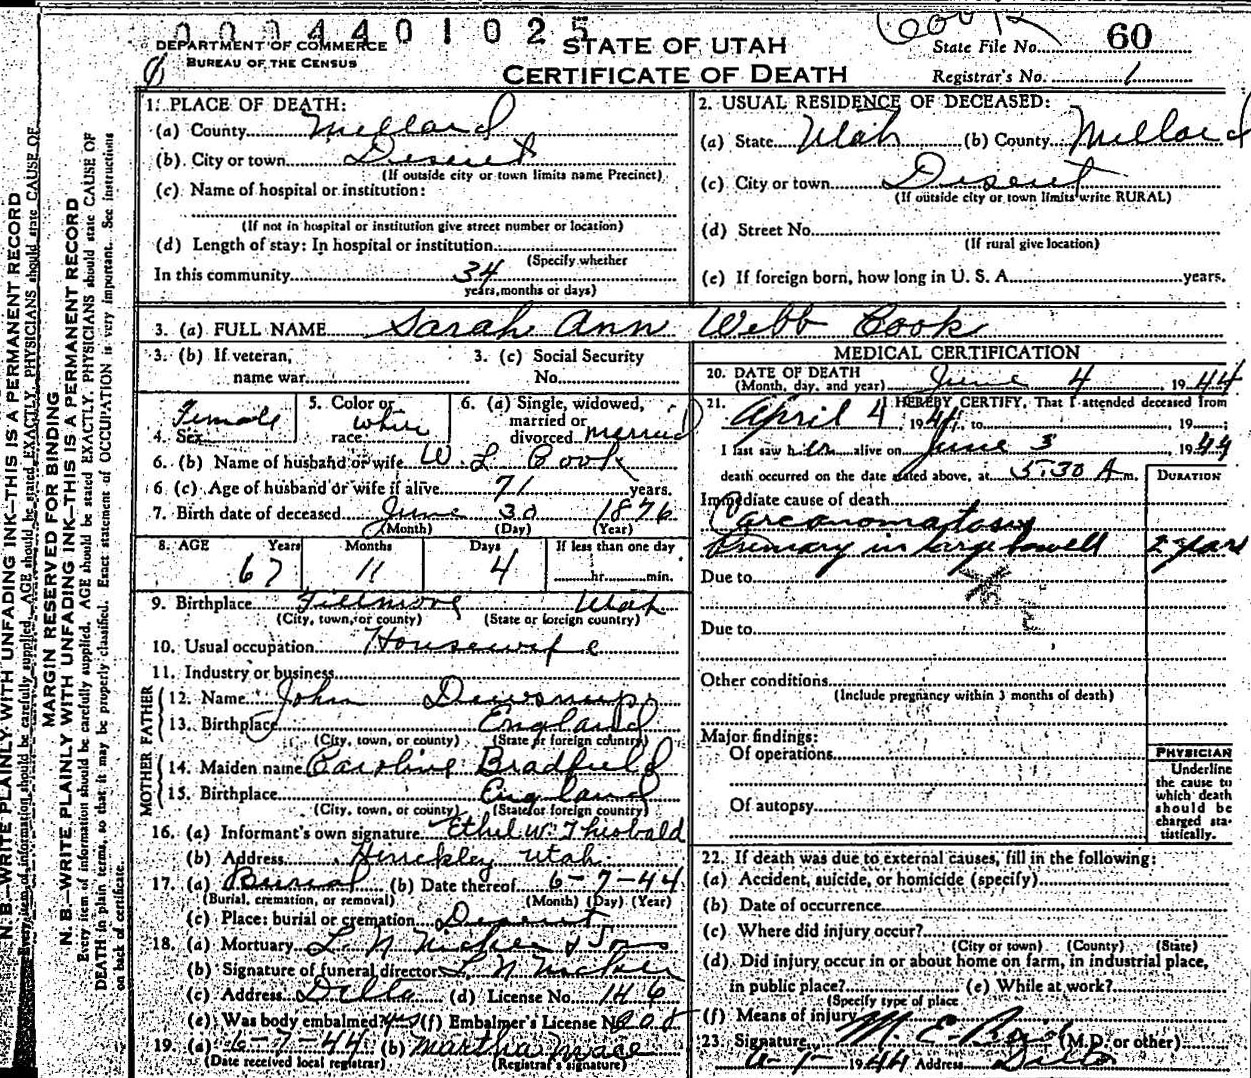 0 0 0 4 4 0 1 0 2 5
Cook
DEPARTMENT OF COMMERCE
BUREAU OF THE CENSUS
STATE OF UTAH
CERTIFICATE OF DEATH
State File No. 60
Registrar's No. 1
N. B.—WRITE PLAINLY WITH UNFADING INK—THIS IS A PERMANENT RECORD
Every item of information should be carefully supplied. AGE should be stated EXACTLY. PHYSICIANS should state CAUSE OF
MARGIN RESERVED FOR BINDING
N. B.—WRITE PLAINLY WITH UNFADING INK—THIS IS A PERMANENT RECORD
Every item of information should be carefully supplied. AGE should be stated EXACTLY. PHYSICIANS should state CAUSE OF
DEATH in plain terms, so that it may be properly classified. Exact statement of OCCUPATION is very important. See instructions
on back of certificate.
1. PLACE OF DEATH:
(a) County Millard
(b) City or town Deseret
(If outside city or town limits name Precinct)
(c) Name of hospital or institution:
(If not in hospital or institution give street number or location)
(d) Length of stay: In hospital or institution
(Specify whether
In this community 34
years, months or days)
2. USUAL RESIDENCE OF DECEASED:
(a) State Utah (b) County Millard
(c) City or town Deseret
(If outside city or town limits write RURAL)
(d) Street No.
(If rural give location)
(e) If foreign born, how long in U. S. A. years.
3. (a) FULL NAME Sarah Ann Webb Cook
3. (b) If veteran,
name war
3. (c) Social Security
No.
4. Sex Female
5. Color or
race White
6. (a) Single, widowed,
married or
divorced married
6. (b) Name of husband or wife W. L. Cook
6 (c) Age of husband or wife if alive 71 years.
7. Birth date of deceased June 30 1876
(Month) (Day) (Year)
8. AGE Years Months Days If less than one day
67 11 4 hr. min.
9. Birthplace Fillmore Utah
(City, town, or county) (State or foreign country)
10. Usual occupation Housewife
11. Industry or business
FATHER
12. Name John Dewsnup
13. Birthplace England
(City, town, or county) (State or foreign country)
MOTHER
14. Maiden name Caroline Bradfield
15. Birthplace England
(City, town, or county) (State or foreign country)
16. (a) Informant's own signature Ethel W. Theobald
(b) Address Hinckley Utah
17. (a) Burial (b) Date thereof 6-7-44
(Burial, cremation, or removal) (Month) (Day) (Year)
(c) Place: burial or cremation Deseret
18. (a) Mortuary L. N. & Sons
(b) Signature of funeral director L N
(c) Address Delta (d) License No. 146
(e) Was body embalmed? yes (f) Embalmer's License No.
19. (a) 6-7-44 (b) Martha Mace
(Date received local registrar) (Registrar's signature)
MEDICAL CERTIFICATION
20. DATE OF DEATH
(Month, day, and year) June 4, 1944
21. I HEREBY CERTIFY, That I attended deceased from
April 4, 1944, to , 19 ;
I last saw her alive on June 3 1944
death occurred on the date stated above, at 5:30 A m.
DURATION
Immediate cause of death
Carcinomatosis
Primary in large bowell 2 years
Due to
Due to
Other conditions
(Include pregnancy within 3 months of death)
Major findings:
Of operations
Of autopsy
PHYSICIAN
Underline
the cause to
which death
should be
charged sta-
tistically.
22. If death was due to external causes, fill in the following:
(a) Accident, suicide, or homicide (specify)
(b) Date of occurrence
(c) Where did injury occur?
(City or town) (County) (State)
(d) Did injury occur in or about home on farm, in industrial place,
in public place? (e) While at work?
(Specify type of place
(f) Means of injury
23. Signature M E Bird (M.D. or other)
1944 Address Delta